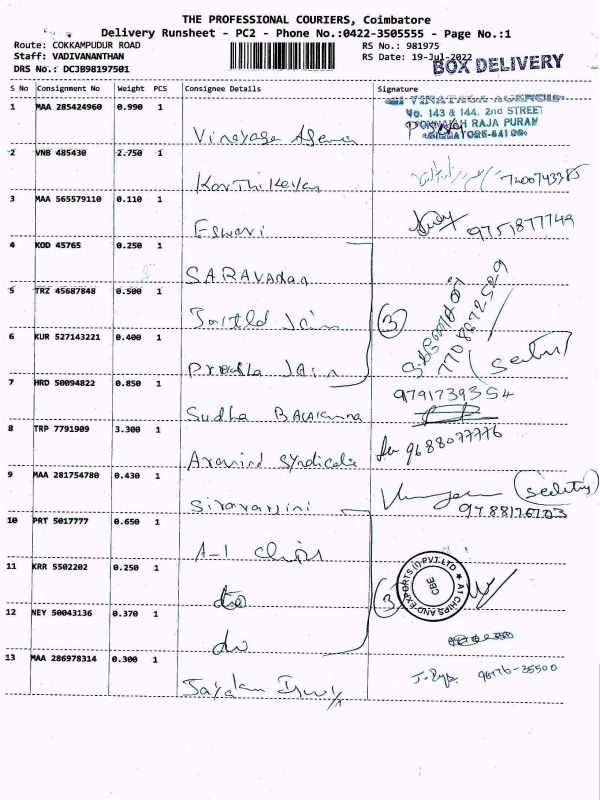 THE PROFESSIONAL COURIERS, Coimbatore
Delivery Runsheet - PC2 - Phone No.:0422-3505555 - Page No.:1
Route: COKKAMPUDUR ROAD RS No.: 981975
Staff: VADIVANANTHAN RS Date: 19-Jul-2022
BOX DELIVERY
DRS No.: DCJB98197501
S No Consignment No Weight PCS Consignee Details Signature
1 MAA 285424960 0.990 1
VINAYAGA AGENCIES
No. 143 & 144. 2nd STREET
RAJA PURAM
Vinayaga Agency
2 VNB 485430 2.750 1
Karthikeyan
3 MAA 565579110 0.110 1
Eswari 9751877749
4 KOD 45765 0.250 1
SARAVANAN
5 TRZ 45687848 0.500 1
Jain 3 7708872529
6 KUR 527143221 0.400 1
Jain
7 HRD 50094822 0.850 1 9791739354
Sudha
8 TRP 7791909 3.300 1 9688077776
Aravind Syndicate
9 MAA 281754780 0.430 1
9788176703
10 PRT 5017777 0.650 1
A-1 Chips
11 KRR 5502202 0.250 1
do 3
A1 CHIPS AND EXPORTS (I) PVT. LTD ★ CBE
12 NEY 50043136 0.370 1
do
13 MAA 286978314 0.300 1 96776-35500